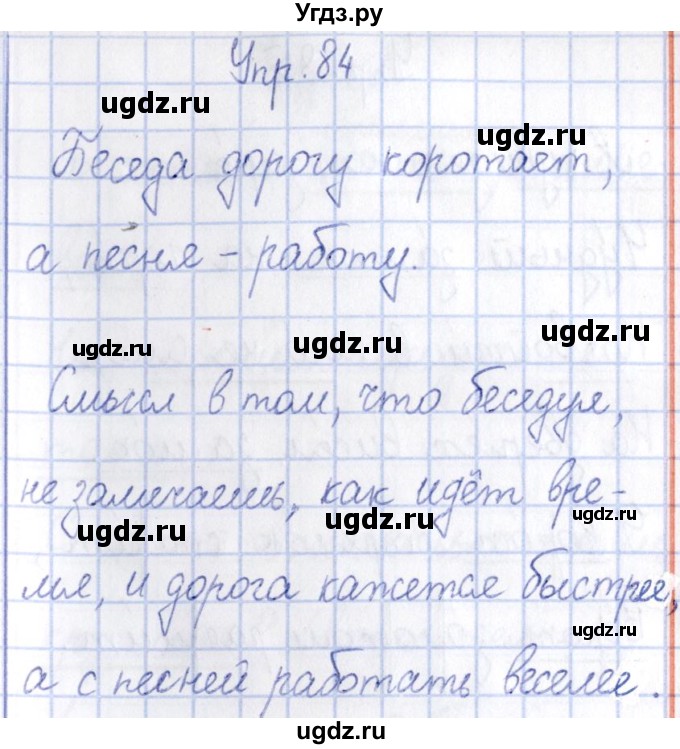 Угдз.ру
Упр. 84
ugdz.ru
ugdz.ru
Беседа дорогу коротает,
а песня – работу.
ugdz.ru
ugdz.ru
ugdz.ru
ugdz.ru
Смысл в том, что беседуя,
не замечаешь, как идёт вре-
ugdz.ru
ugdz.ru
ugdz.ru
мя, и дорога кажется быстрее,
ugdz.ru
а с песней работать веселее.
ugdz.ru